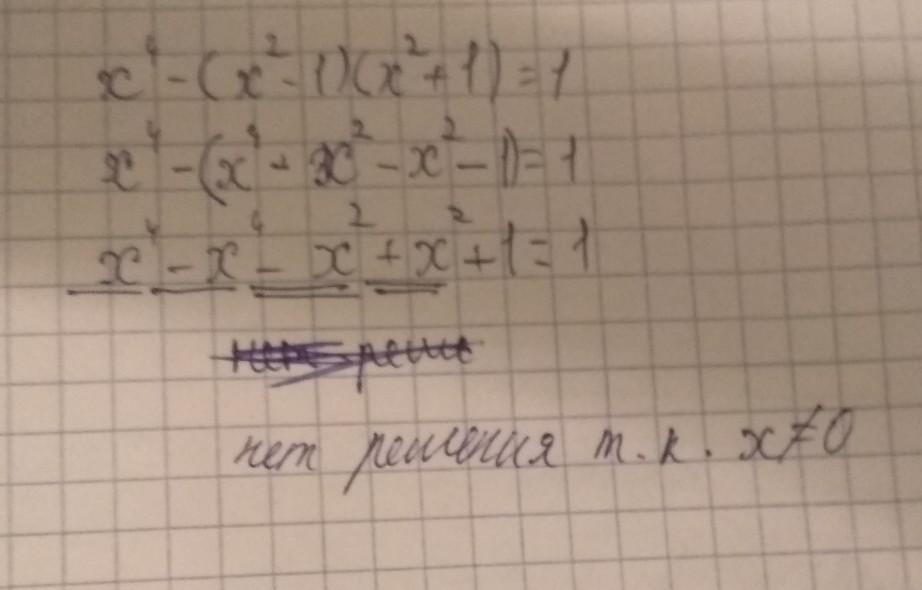 x⁴ - (x² - 1)(x² + 1) = 1
x⁴ - (x⁴ + x² - x² - 1) = 1
x⁴ - x⁴ - x² + x² + 1 = 1
нет реше
нет решения т.к. x ≠ 0